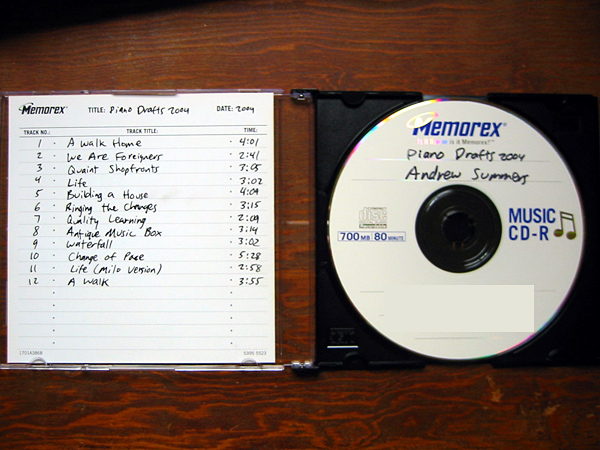 Memorex® TITLE: Piano Drafts 2004 DATE: 2004
TRACK NO.: TRACK TITLE: TIME:
1 · A Walk Home · 4:01
2 · We Are Foreigners · 2:41
3 · Quaint Shopfronts · 3:05
4 · Life · 3:02
5 · Building a House · 4:09
6 · Ringing the Changes · 3:15
7 · Quality Learning · 2:09
8 · Antique Music Box · 3:14
9 · Waterfall · 3:02
10 · Change of Pace · 5:28
11 · Life (Milo Version) · 2:58
12 · A Walk · 3:55
Memorex®
is it Memorex?™
Piano Drafts 2004
Andrew Summers
MUSIC
CD-R
700 MB 80 MINUTE